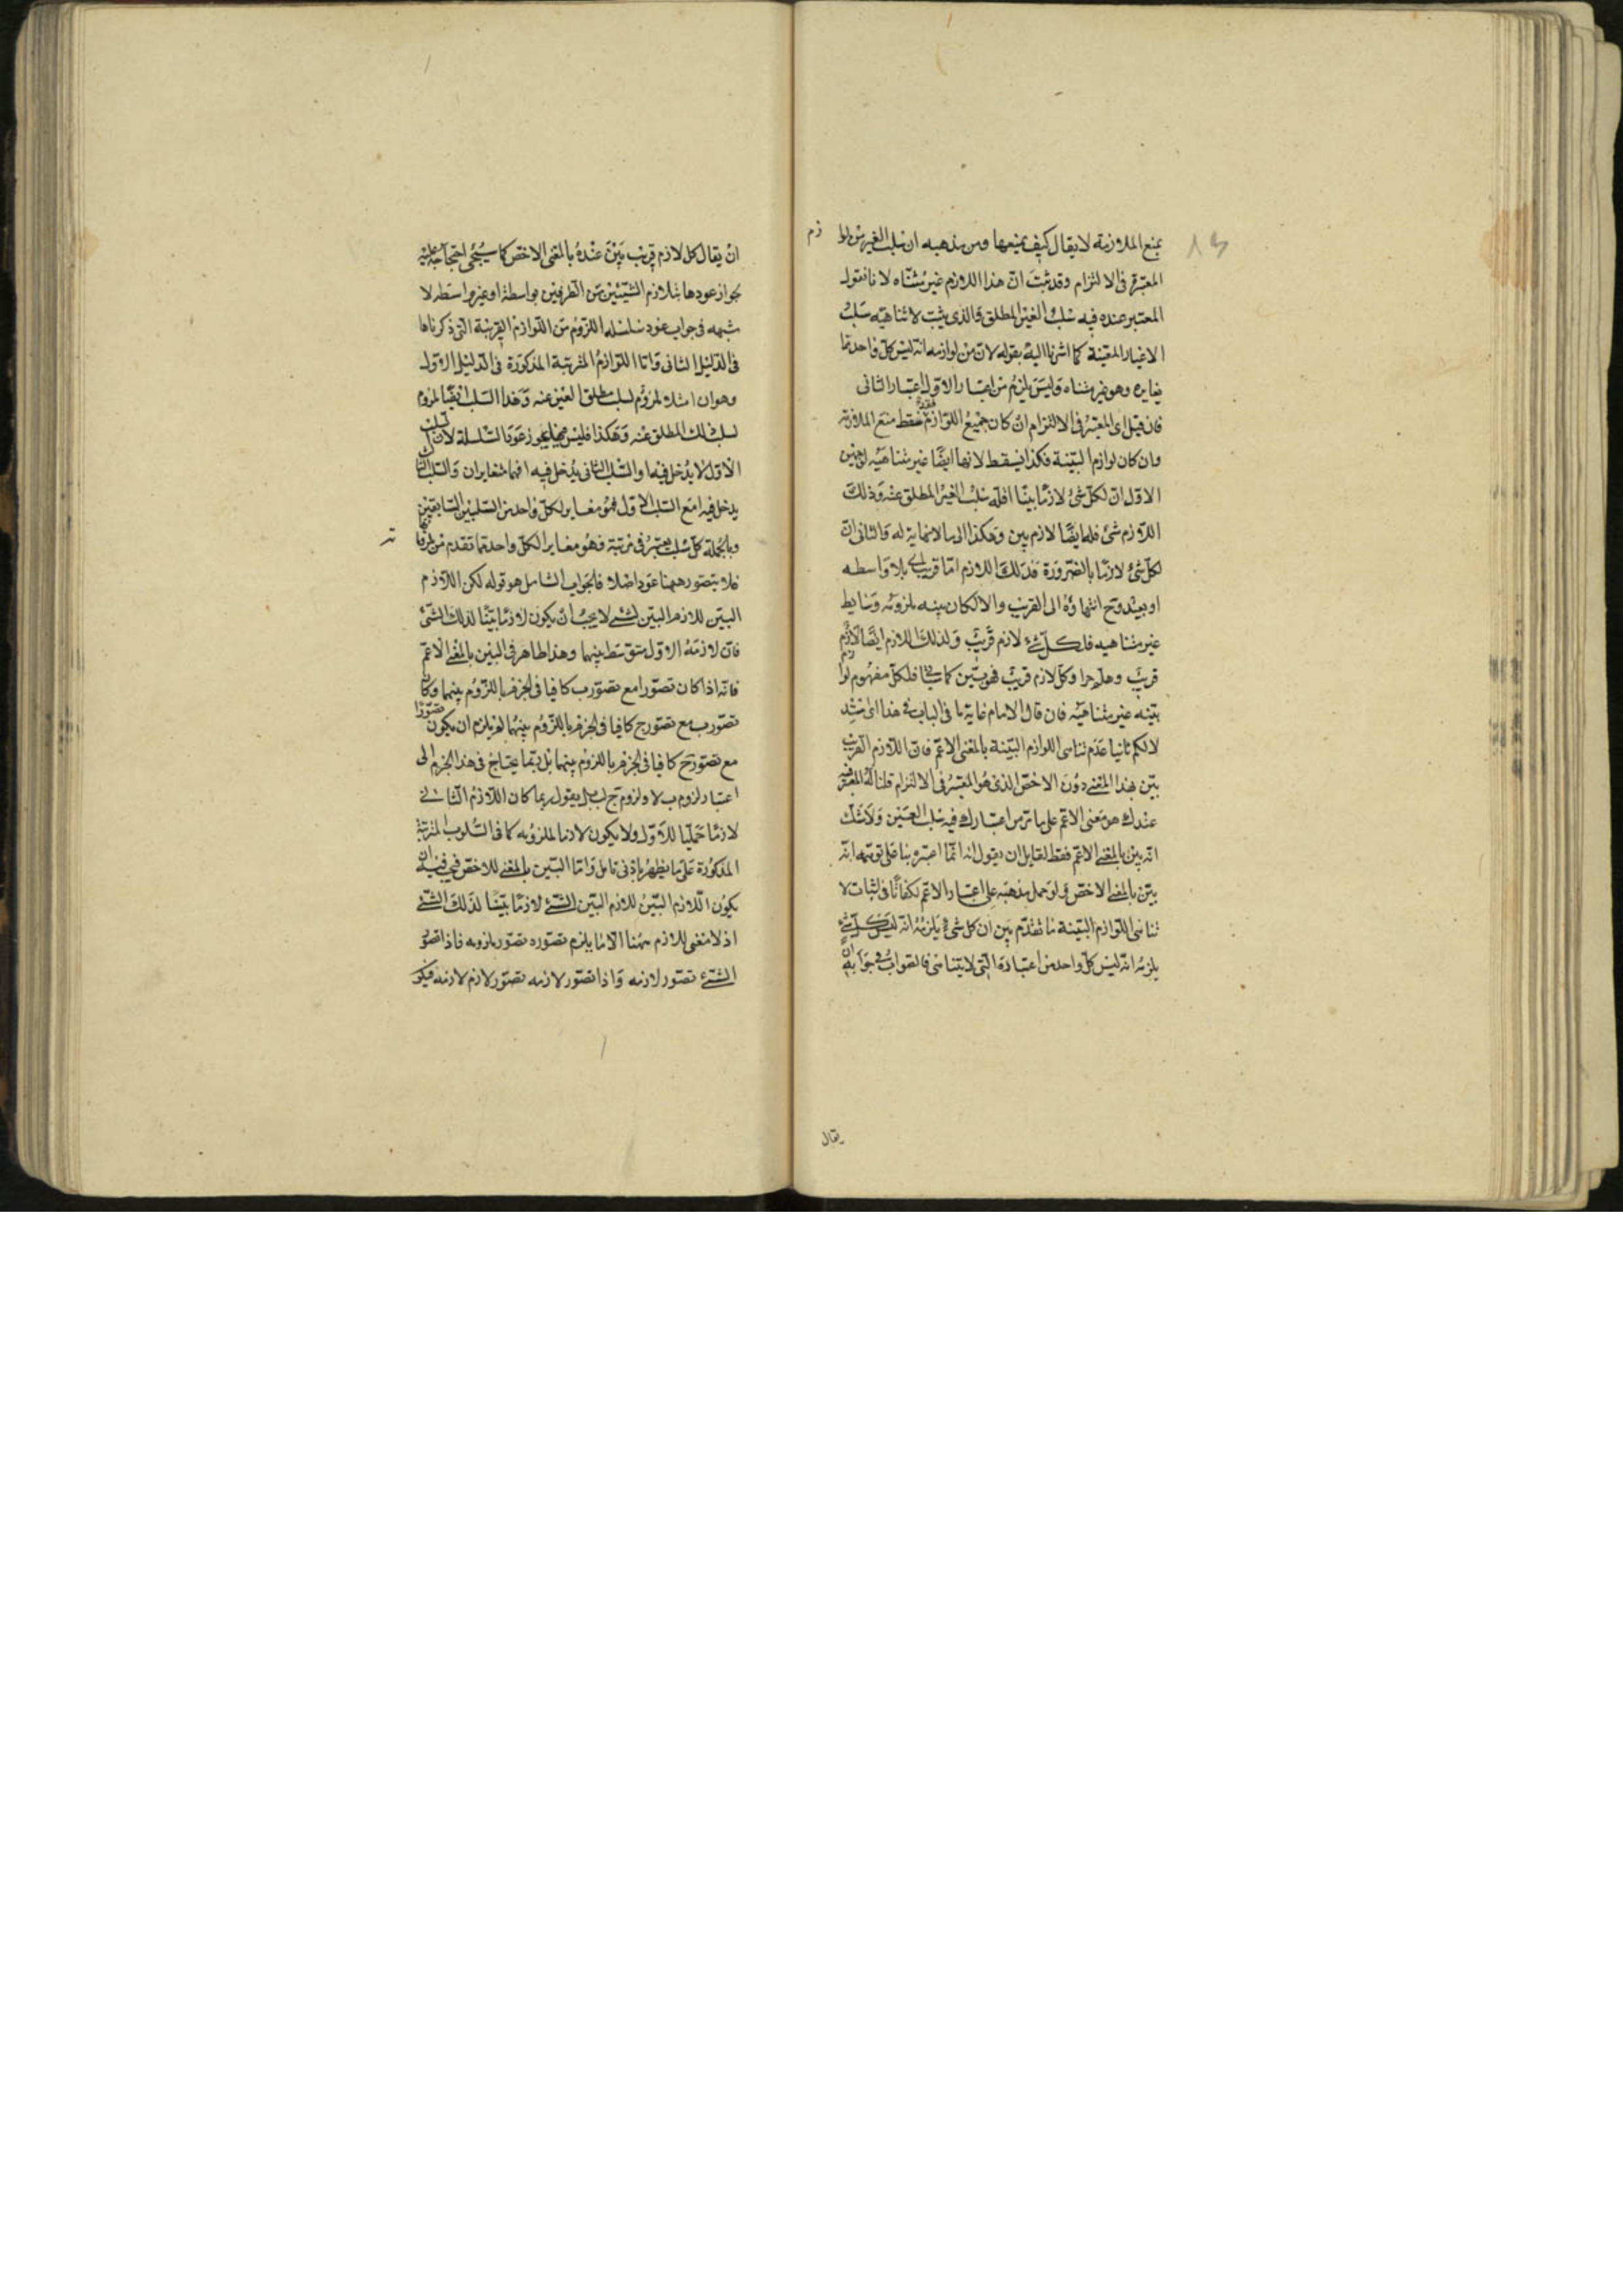 بمنع الملازمة لا يقال كيف يمنعها ومن مذهبه ان سلب الغير من لوازم
المعتبرة فى الالتزام وقد ثبت ان هذا اللازم غير متناه لانا نقول
المعتبر عنده فيه سلب الغير المطلق والذى يثبت لا تناهيه سلب
الاغيار المعينة كما اشرنا اليه بقوله لان من لوازمه انه ليس كل واحد مما
يغايره وهو غير متناه وليس يلزم من اعتبار الاول اعتبار الثانى
فان قيل اى المعتبر فى الالتزام ان كان جميع اللوازم فقط منع الملازمة
وان كان لوازم البينة فكذا يسقط لانها ايضا غير متناهية لوجهين
الاول ان لكل شئ لازما بينا اقله سلب الغير المطلق عنه وذلك
اللازم شئ فله ايضا لازم بين وهكذا الى ما لا نهاية له والثانى ان
لكل شئ لازما بالضرورة فذلك اللازم اما قريب اى بلا واسطه
او بعيد وح انتهاؤه الى القريب والا لكان بينه وملزومه وسايط
غير متناهيه فلكل شئ لازم قريب ولذلك اللازم ايضا لازم
قريب وهلم جرا وكل لازم قريب فهو بين كما سياتى فلكل مفهوم لوازم
بينه غير متناهية فان قال الامام غاية ما فى الباب
لا لكم ثانيا عدم تناهى اللوازم البينة بالمعنى الاعم فان اللازم القريب
بين بهذا المعنى دون الاخص الذى هو المعتبر فى الالتزام قلنا له المعتبر فيه
عندك هو معنى الاعم على ما مر من اعتبارك فيه سلب الغير ولا شك
انه بين بالمعنى الاعم فقط لقايل ان يقول انه انما اعتبره بناء على توهمه انه
بين بالمعنى الاخص ولو حمل مذهبه على اعتبار الاعم لكفانا فى اثبات لا
تناهى اللوازم البينة ما تقدم من ان كل شئ يلزمه انه ليس كل شئ
يلزمه انه ليس كل واحد من اغياره التى لا تتناهى فالصواب فى جوابه ان
يقال
ان يقال كل لازم قريب بين عنده بالمعنى الاخص كما سيجئ احتجاجه عليه
جواز عودها بتلازم الشيئين من الطرفين بواسطة او بغير واسطه لا
شبهه فى جواب عود سلسله اللزوم من اللوازم القريبة التى ذكرناها
فى الدليل الثانى واما اللوازم المترتبة المذكورة فى الدليل الاول
وهو ان ا مثلا ملزوم لسلب مطلق الغير عنه وهذا السلب ايضا ملزوم
لسلب ذلك المطلق عنه وهكذا فليس مما يجوز عود السلسلة لان السلب
الاول لا يدخل فيها والسلب الثانى يدخل فيه ا فهما متغايران والسلب الثا
يدخل فيه ا مع السلب الاول فهو مغاير لكل واحد من السلبين السابقين
وبالجملة كل سلب يعتبر فى مرتبة فهو مغاير لكل واحد مما تقدم من
فلا يتصور ههنا عود اصلا فالجواب الشامل هو قوله لكن اللازم
البين للازم البين لشئ لا يجب ان يكون لازما بينا لذلك الشئ
فان لازمه الاول متوسط بينهما وهذا ظاهر فى البين بالمعنى الاعم
فانه اذا كان تصور ا مع تصور ب كافيا فى الجزم باللزوم بينهما وكان
تصور ب مع تصور ج كافيا فى الجزم باللزوم بينهما لم يلزم ان يكون تصور ا
مع تصور ج كافيا فى الجزم باللزوم بينهما بل ربما يحتاج فى هذا الجزم الى
اعتبار لزوم ب لا ولزوم ج لب بل يقول ربما كان اللازم الثانى
لازما حمليا للاول ولا يكون لازما لملزومه كما فى السلوب المترتبة
المذكورة على ما يظهر بادنى تامل واما البين بالمعنى الاخص
يكون اللازم البين للازم البين للشئ لازما بينا لذلك الشئ
اذ لا معنى للازم ههنا الا ما يلزم تصوره تصور ملزومه فاذا تصور
الشئ تصور لازمه واذا تصور لازمه تصور لازم لازمه فيكو